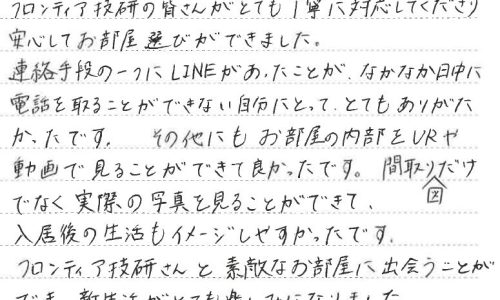 フロンティア技研の皆さんがとても丁寧に対応してくださり
安心してお部屋選びができました。
連絡手段の一つにLINEがあったことが、なかなか日中に
電話を取ることができない自分にとって、とてもありがた
かったです。 その他にもお部屋の内部をURや
動画で見ることができて良かったです。間取り図だけ
でなく実際の写真を見ることができて、
入居後の生活もイメージしやすかったです。
フロンティア技研さんと素敵なお部屋に出会うことが
でき、新生活がとても楽しみになりました